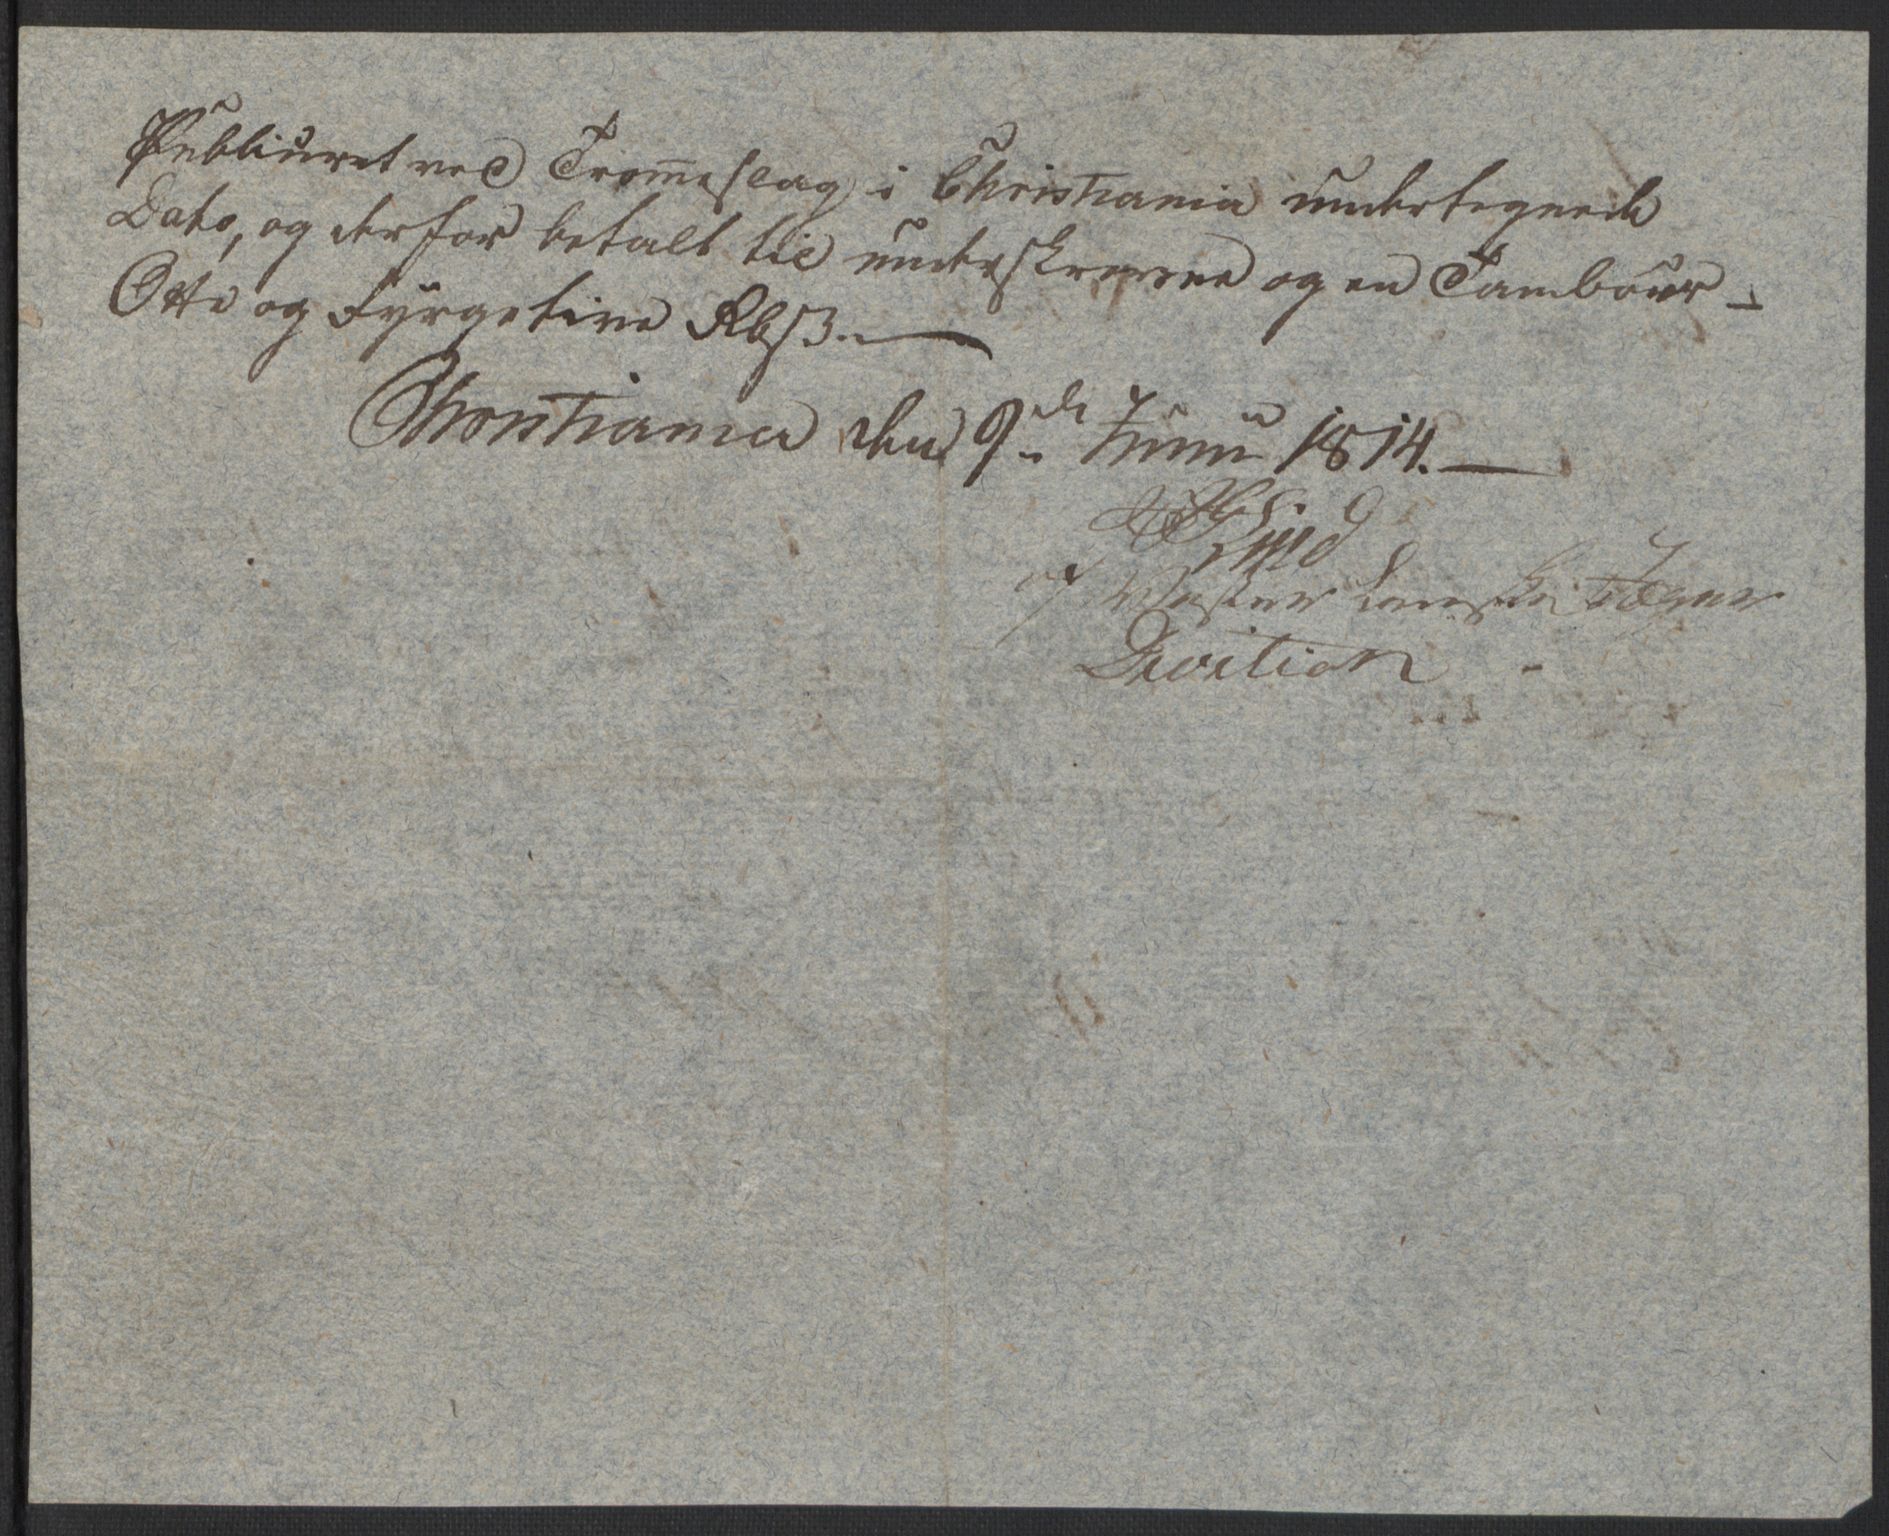 Publiceret ved Trom̅eslag i Christiania undertegnede
Dato, og derfor betalt til underskrevne og en Tambour –
Otte og Fyrgetive Rbsz. —
Christiania den 9de Junii 1814. —
Division